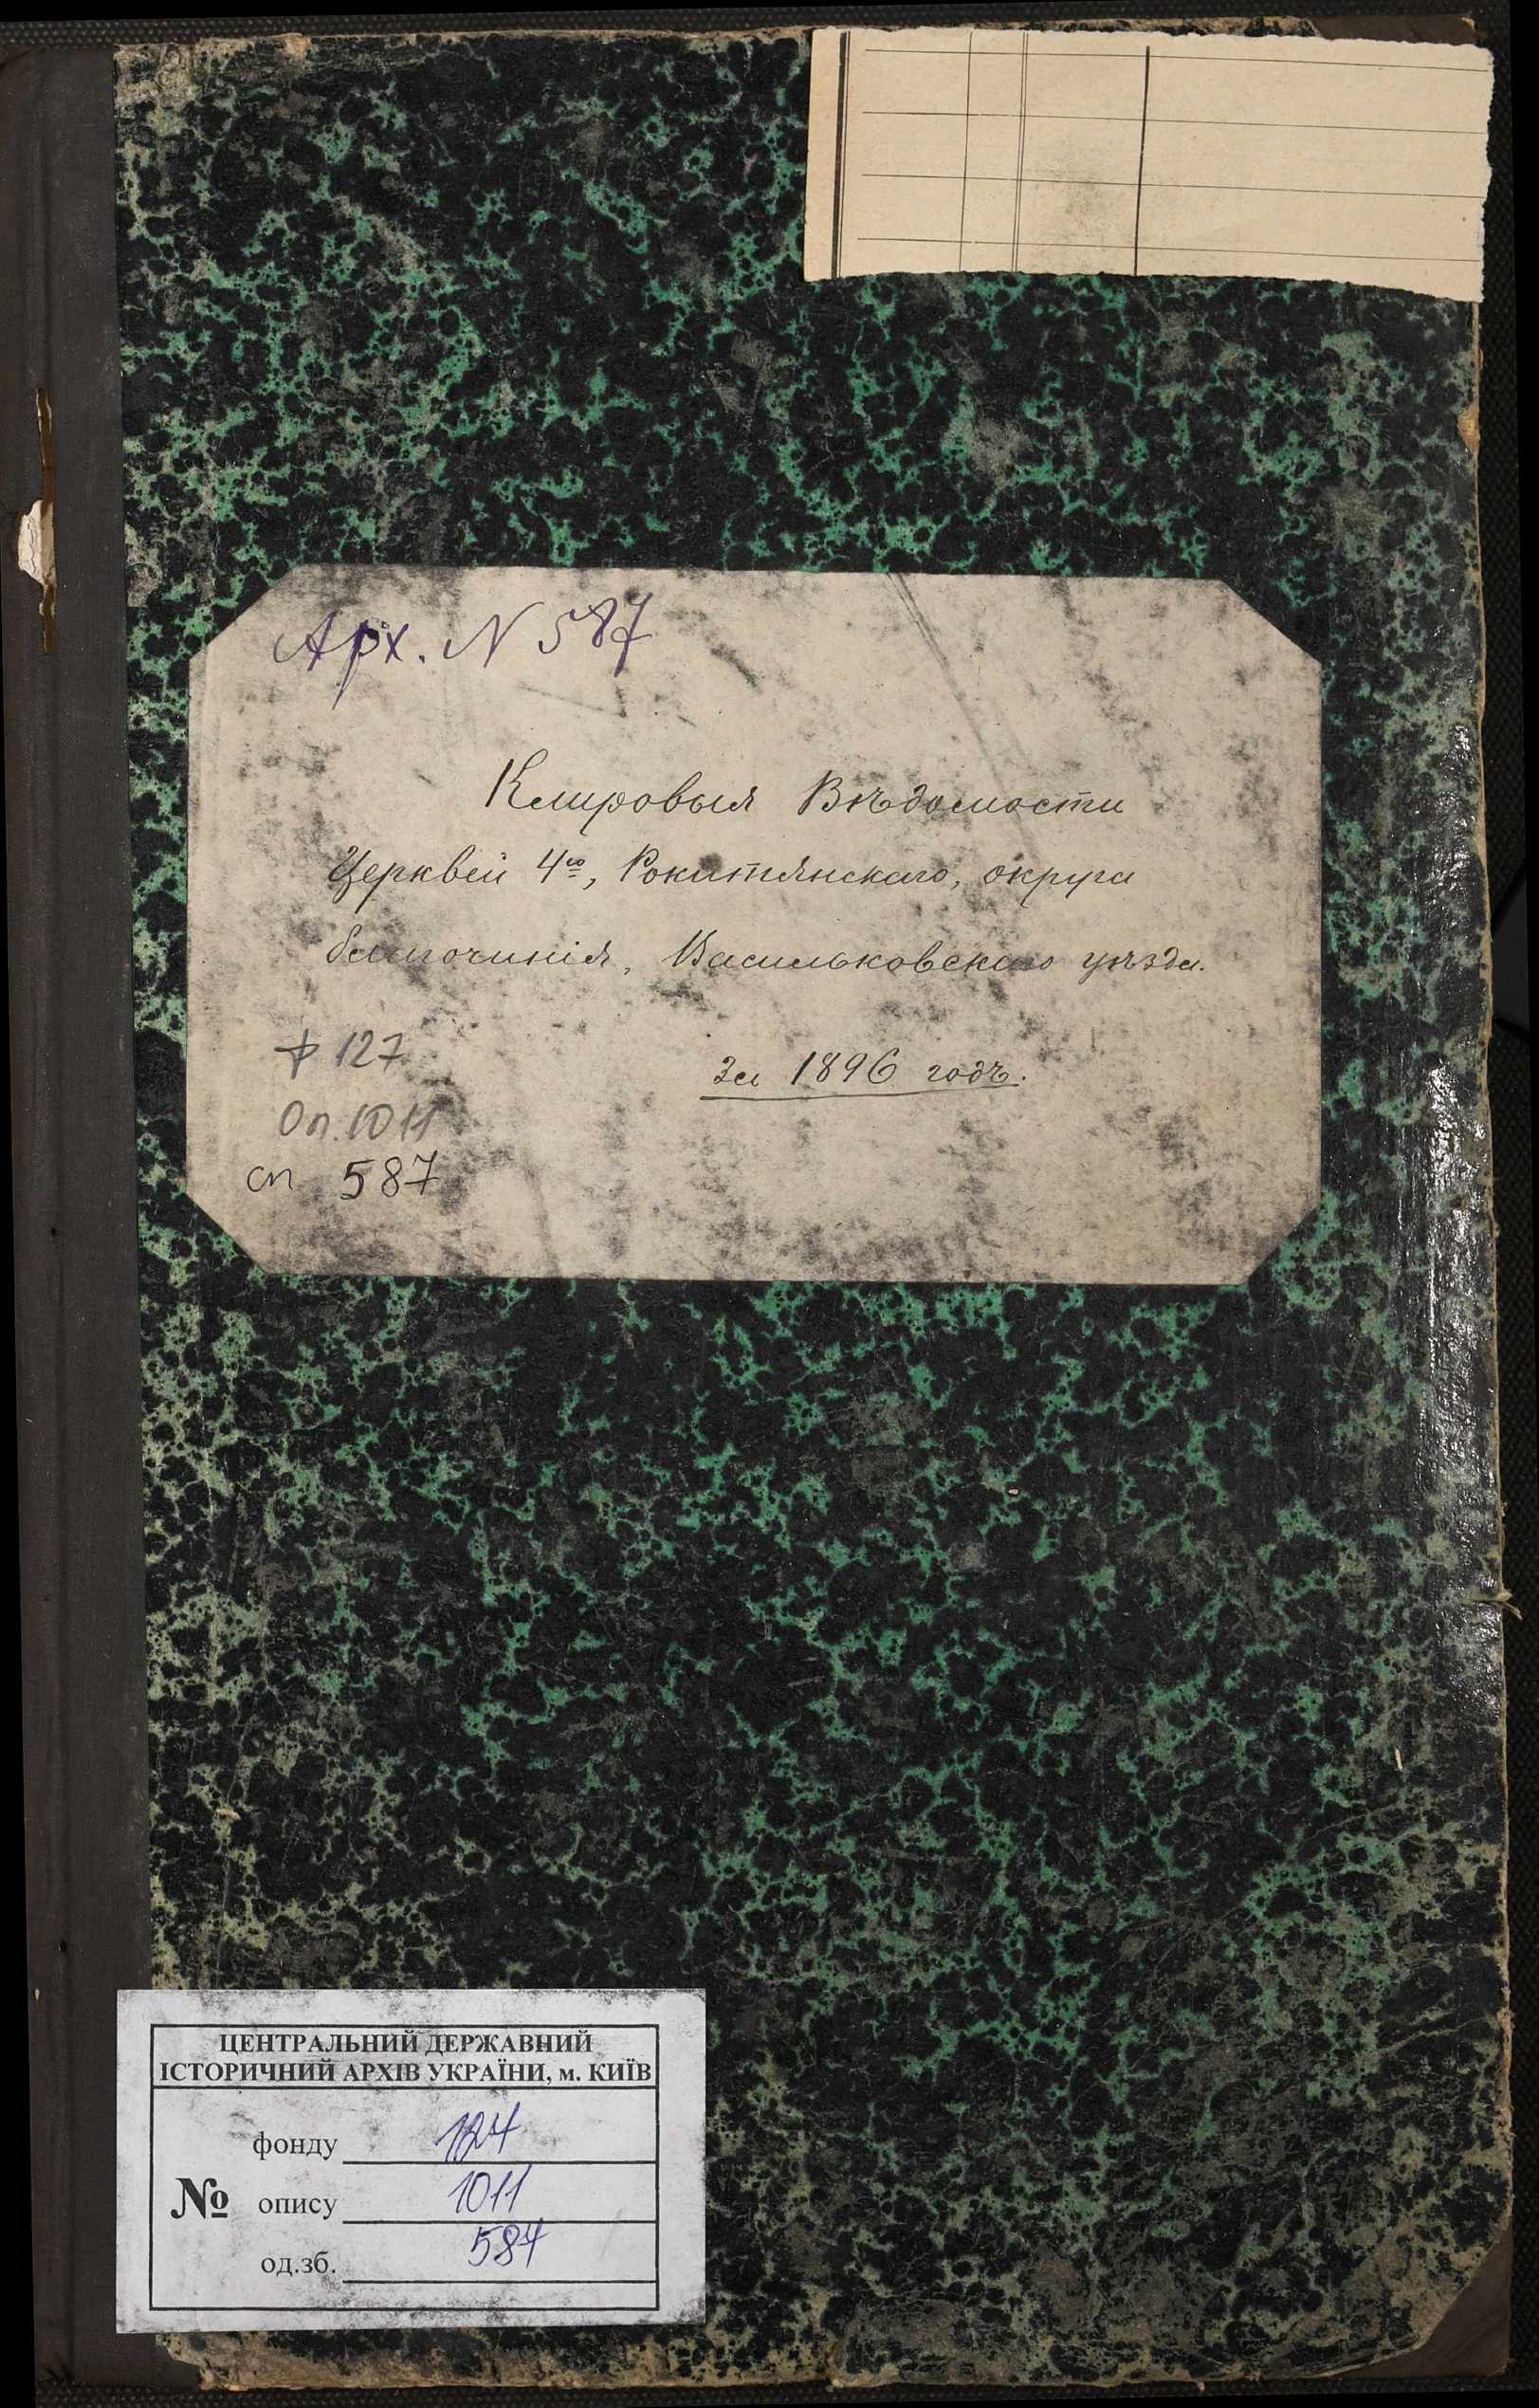 Арх. N 587
Клировыя Вѣдомости
Церквей 4го, Рокитянскаго, округа
благочинія, Васильковскаго уѣзда.
за 1896 годъ.
ф 127
Оп. 1011
сп 587
ЦЕНТРАЛЬНИЙ ДЕРЖАВНИЙ
ІСТОРИЧНИЙ АРХІВ УКРАЇНИ, м. КИЇВ
фонду 127
№ опису 1011
од.зб. 587